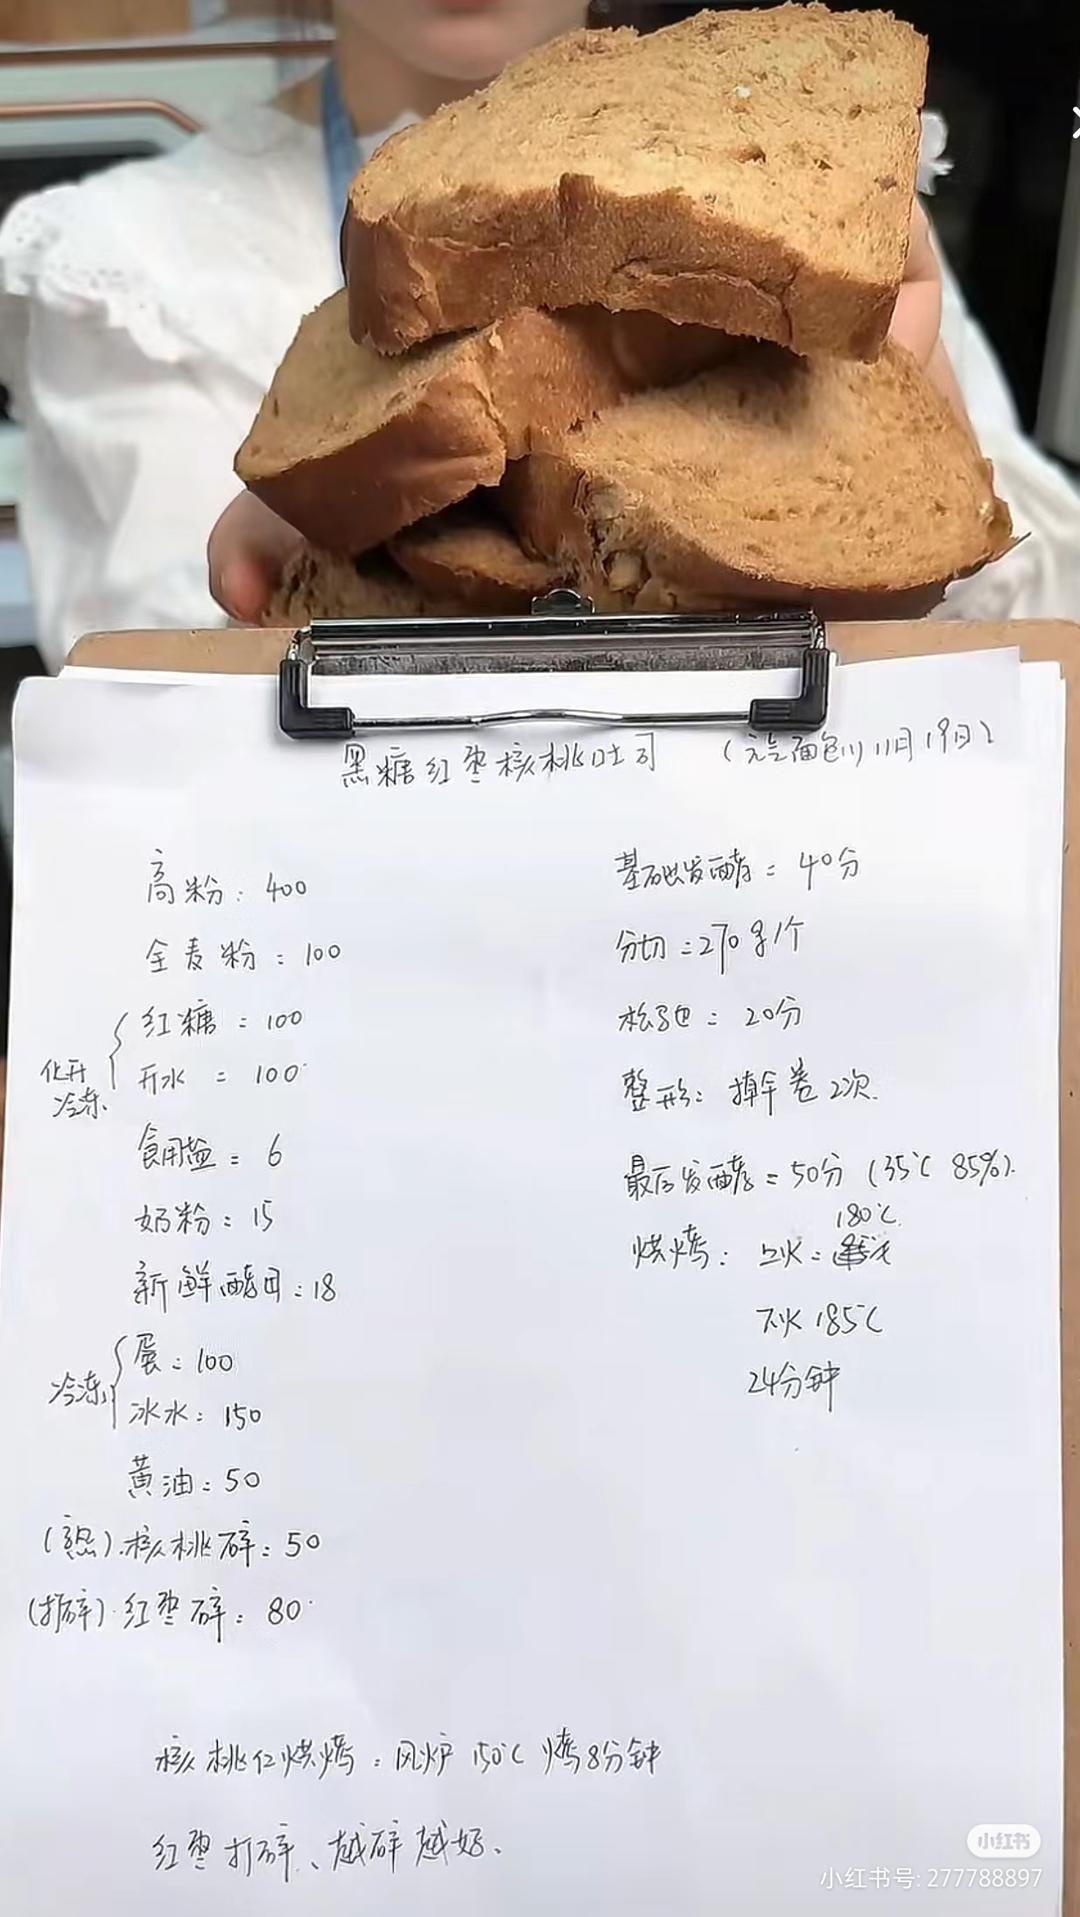 黑糖红枣核桃吐司 (元气面包)11月19日)
高粉: 400
全麦粉: 100
化开
冷冻.
红糖: 100
开水 = 100
食用盐 = 6
奶粉: 15
新鲜酵母: 18
冷冻
蛋: 100
冰水: 150
黄油: 50
(熟).核桃碎: 50
(打碎).红枣碎: 80
基础发酵: 40分
分切 = 270g/个
松弛: 20分
整形: 擀卷2次.
最后发酵 = 50分 (35℃ 85%).
180℃.
烘烤: 上火:
下火 185℃
24分钟
核桃仁烘烤: 风炉 150℃ 烤8分钟
红枣打碎、越碎越好、
小红书
小红书号: 277788897